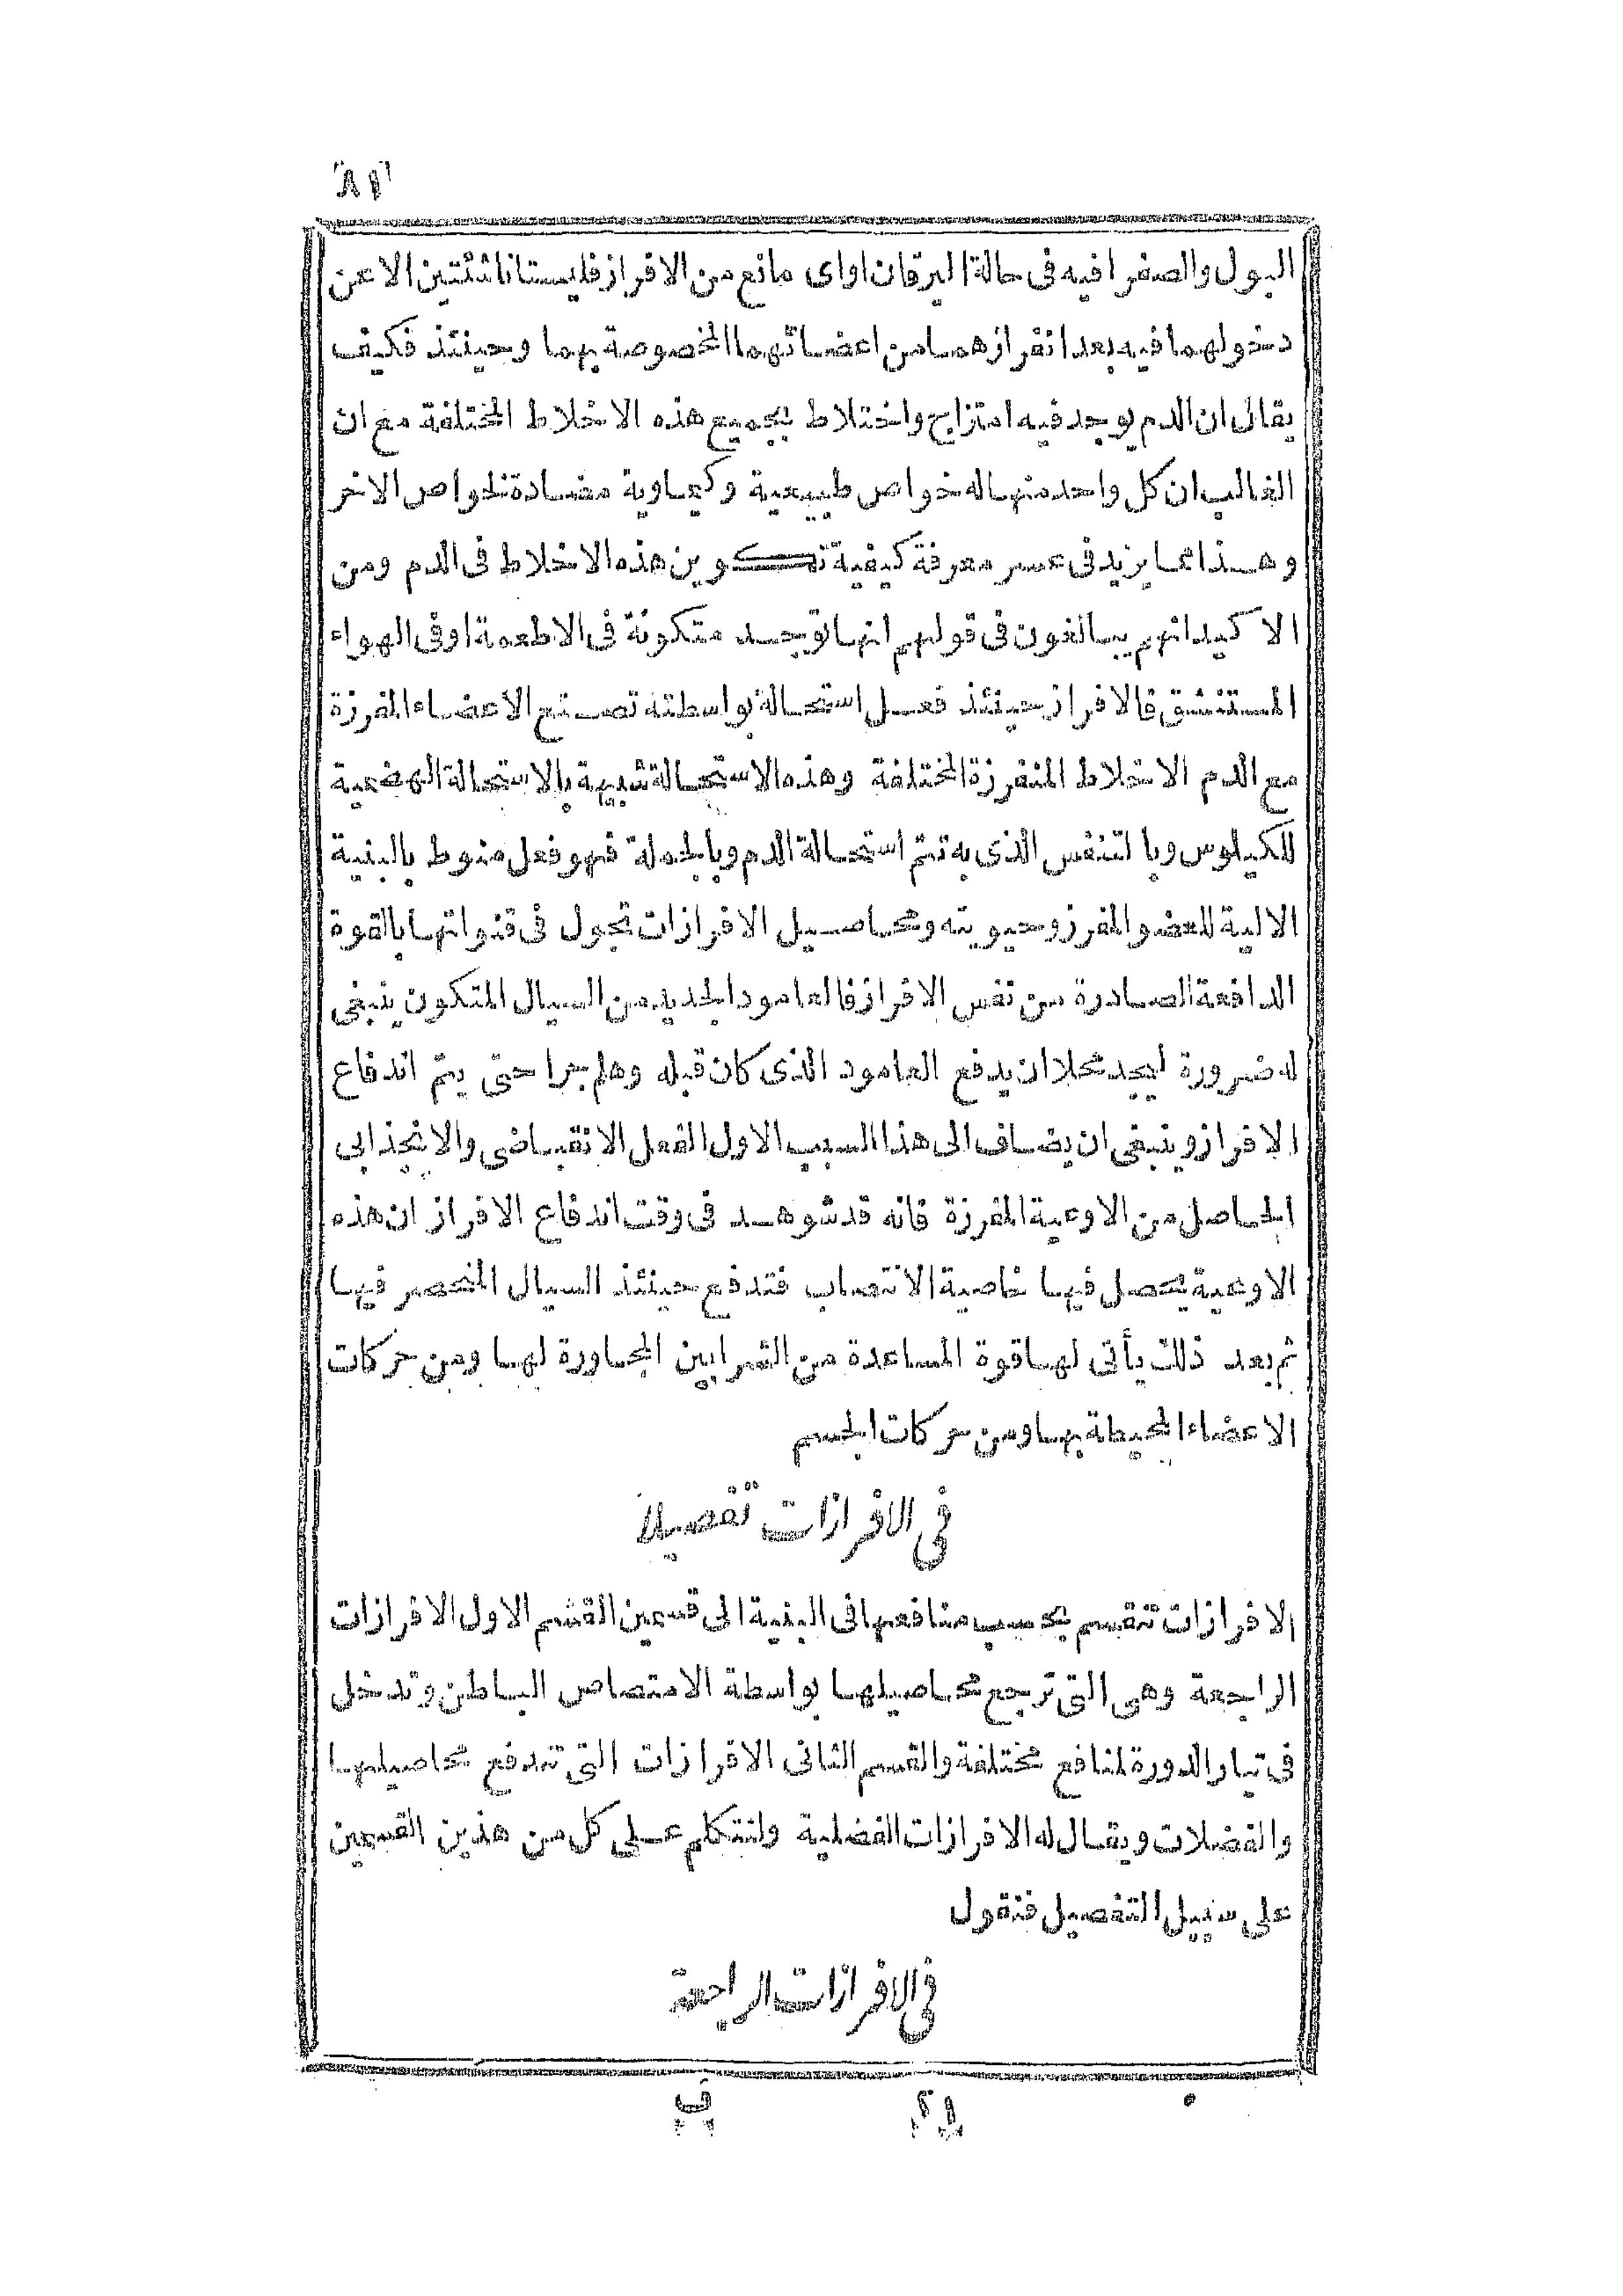 البول والصفرا فيه فى حالة اليرقان او اى مانع من الافراز فليستا ناشئتين الا عن
دخولهما فيه بعد انفرازهما من اعضائهما المخصوصة بهما وحينئذ فكيف
يقال ان الدم يوجد فيه امتزاج واختلاط بجميع هذه الاخلاط المختلفة مع ان
الغالب ان كل واحد منها له خواص طبيعية وكيماوية مضادة لخواص الاخر
وهذا مما يزيد فى عسر معرفة كيفية تكوين هذه الاخلاط فى الدم ومن
الاكيد انهم يبالغون فى قولهم انها توجد متكونة فى الاطعمة او فى الهواء
المستنشق فالافراز حينئذ فعل استحالة بواسطته تصنع الاعضاء المفرزة
مع الدم الاخلاط المنفرزة المختلفة وهذه الاستحالة شبيهة بالاستحالة الهضمية
للكيلوس وبالتنفس الذى به تتم استحالة الدم وبالجملة فهو فعل منوط بالبنية
الالية للعضو المفرز وحيويته ومحاصيل الافرازات تجول فى قنواتها بالقوة
الدافعة الصادرة من نفس الافراز فالعامود الجديد من السيال المتكون ينبغى
له ضرورة ليجد محلا ان يدفع العامود الذى كان قبله وهلم جرا حتى يتم اندفاع
الافراز وينبغى ان يضاف الى هذا السبب الاول الفعل الانقباضى والانجذابى
الحاصل من الاوعية المفرزة فانه قد شوهد فى وقت اندفاع الافراز ان هذه
الاوعية يحصل فيها خاصية الانتصاب فتدفع حينئذ السيال المنحصر فيها
ثم بعد ذلك يأتى لها قوة المساعدة من الشرايين المجاورة لها ومن حركات
الاعضاء المحيطة بها ومن حركات الجسم
فى الافرازات تفصيلا
الافرازات تنقسم بحسب منافعها فى البنية الى قسمين القسم الاول الافرازات
الراجعة وهى التى ترجع محاصيلها بواسطة الامتصاص الباطن وتدخل
فى تيار الدورة لمنافع مختلفة والقسم الثانى الافرازات التى تندفع محاصيلها
والفضلات ويقال له الافرازات الفضلية ولنتكلم على كل من هذين القسمين
على سبيل التفصيل فنقول
فى الافرازات الراجعة